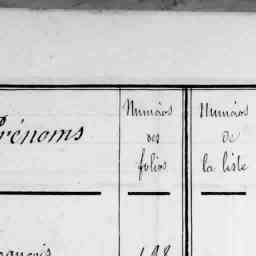 Prénoms
Numéros
des
folios
Numéros
de
la liste